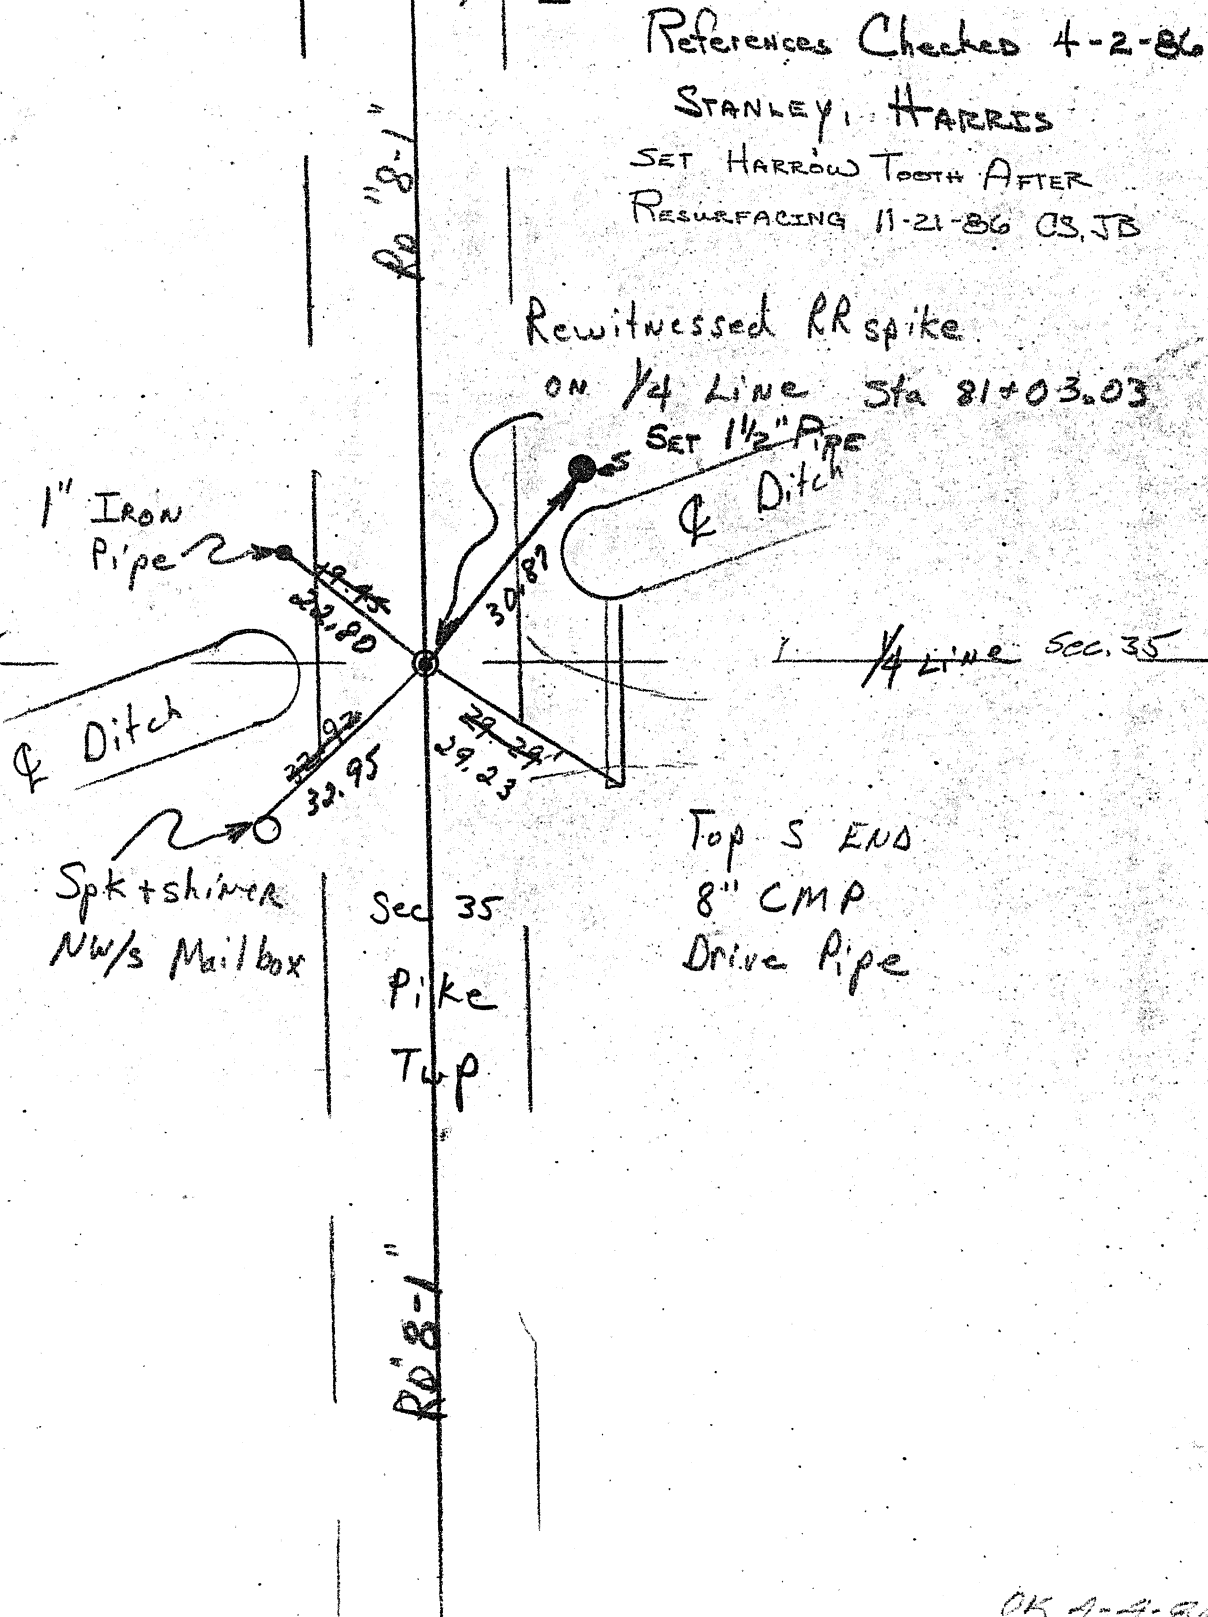 References Checked 4-2-86
STANLEY, HARRIS
SET HARROW TOOTH AFTER
RESURFACING 11-21-86 CS, JB
RD "8-1"
Rewitnessed RR spike
ON 1/4 LiNe Sta 81+03.03
SET 1 1/2" PIPE
℄ Ditch
1" IRON
Pipe
19.45
22.80
30.87
1/4 LiNe Sec. 35
℄ Ditch
32.95
29.29
29.23
Spk + shiner
NW/s Mailbox
Top S END
8" CMP
Drive Pipe
Sec 35
Pike
Twp
RD "8-1"
OK